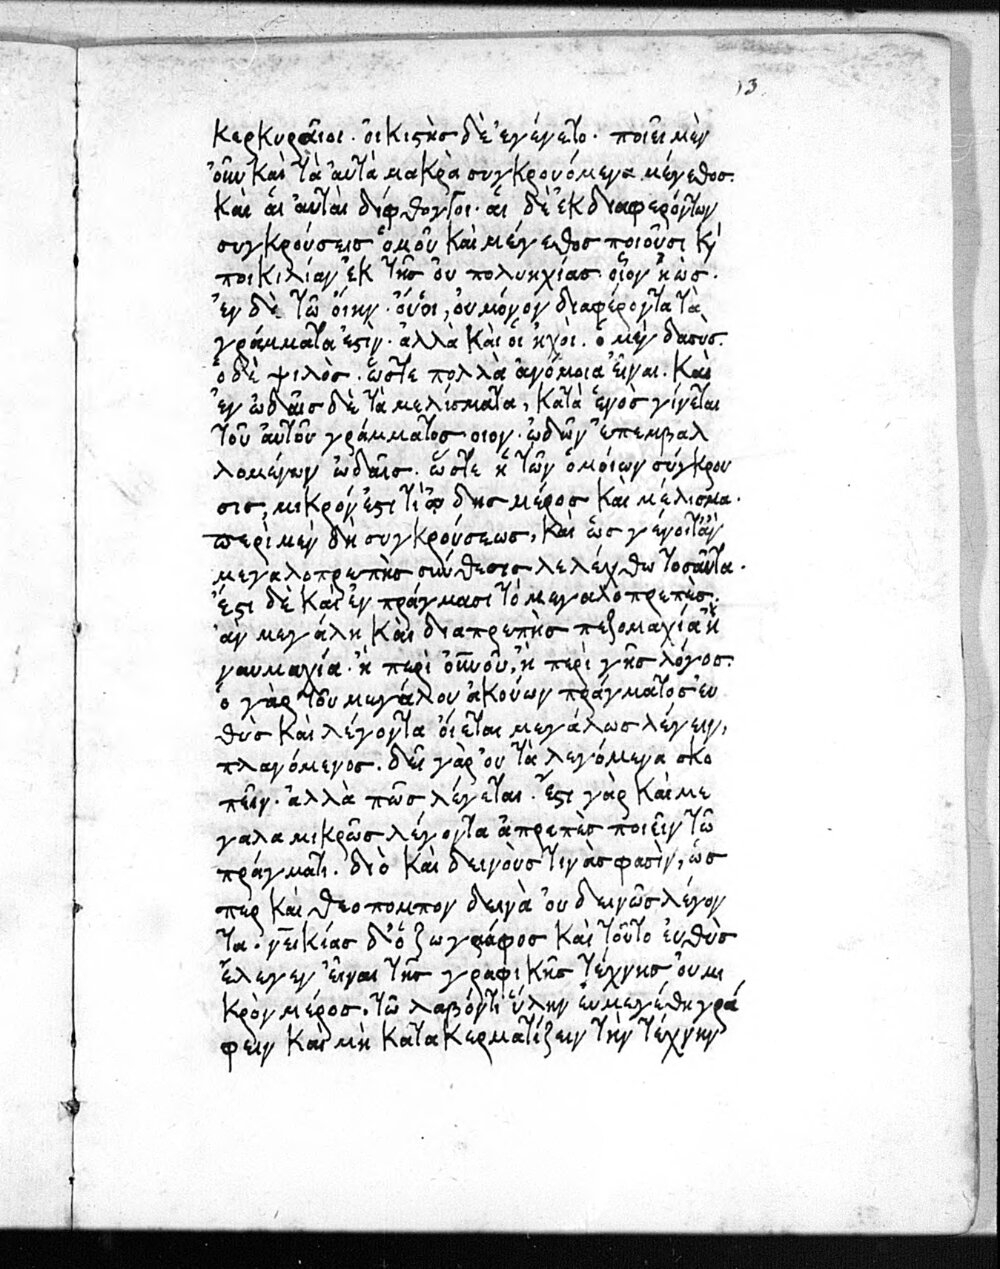 13
κερκυραῖοι· οἰκιστὴς δὲ ἐγένετο· ποιεῖ μὲν
οὖν καὶ τὰ αὐτὰ μακρὰ συγκρουόμενα μέγεθος.
καὶ αἱ αὐταὶ δίφθογγοι· αἱ δὲ ἐκ διαφερόντων
συγκρούσεις ὁμοῦ καὶ μέγεθος ποιοῦσι κὶ
ποικιλίαν ἐκ τῆς ου πολυηχίας οἷον ἠὼς·
ἐν δὲ τῶ ὅιην· ὀύοι, ὀυ μόνον διαφέροντα τὰ
γράμματα ἐστὶν· ἀλλὰ καὶ οἱ ἠχοι. ὁ μὲν δασὺς.
ὁ δὲ ψιλὸς. ὥστε πολλὰ ἀνόμοια εἶναι. καὶ
ἐν ὠδαῖς δὲ τὰ μελίσματα, κατὰ ἑνὸς γίνεται
τοῦ αὐτοῦ γράμματος οιον· ὠδῶν ἐπεμβαλ
λομένων ὠδαῖς. ὥστε ἡ τῶν ὁμοίων σύγκρου
σις, μικρόν ἐστι τὶ ὠδῆς μέρος καὶ μέλισμα.
περὶ μὲν δὴ συγκρούσεως, καὶ ὡς γένοιτ ἀν
μεγαλοπρεπὴς σύνθεσις λελέχθω τοσαῦτα.
ἔστι δὲ καὶ ἐν πράγμασι τὸ μεγαλοπρεπὲς.
ἀν μεγάλη καὶ διαπρεπὴς πεζομαχία ἢ
ναυμαχία· ἢ περὶ οὐνοῦ, ἢ περὶ γῆς λόγος.
ὁ γὰρ τοῦ μεγάλου ἀκούων πράγματος ευ
θὺς καὶ λέγοντα ὀίεται μεγάλως λέγειν,
πλανόμενος. δεῖ γὰρ ὀυ τὰ λεγόμενα σκο
πεῖν· ἀλλὰ πῶς λέγεται· ἔστι γὰρ καὶ με
γαλα μικρῶς λέγοντα ἀπρεπὲς ποιεῖν τῶ
πράγματι. διὸ καὶ δεινοὺς τινὰς φασὶν, ὡσ
περ καὶ θεοπομπον δεινὰ ὀυ δεινῶς λέγον
τα· νεικίας δ'ὁ ζωγράφος καὶ τοῦτο ἐυθὺς
ἔλεγεν εἶναι τῆς γραφικῆς τέχνης ὀυ μι
κρὸν μέρος, τῶ λαβόντι ὕλην ἐυμεγέθη γρά
φειν καὶ μὴ κατακερματίζειν τὴν τέχνην